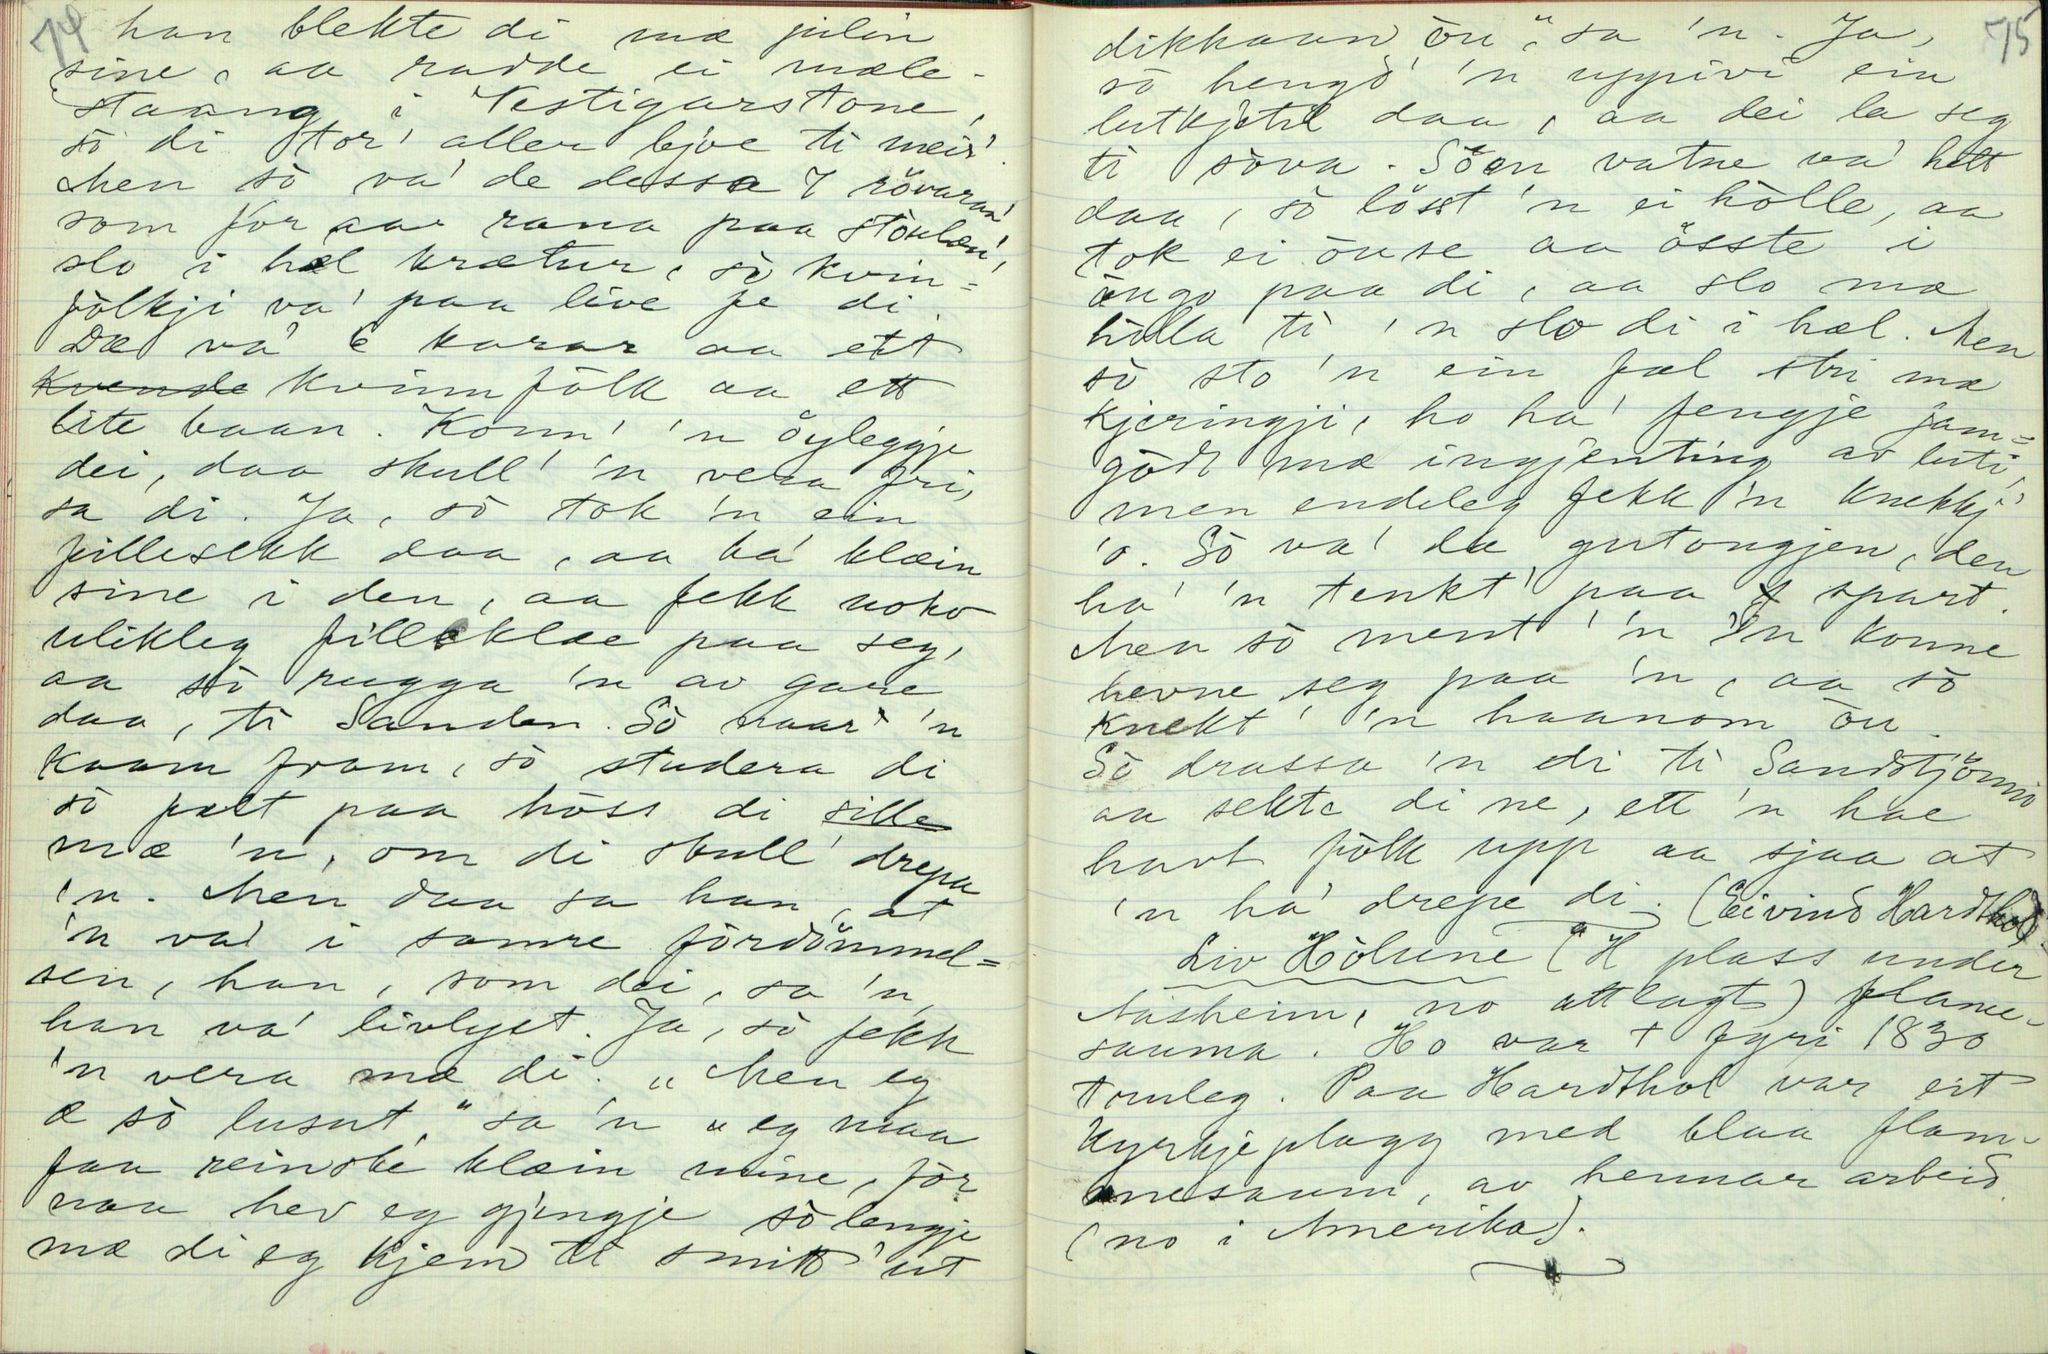 74
han blekte di mæ pilin
sine, aa radde ei mæle-
staang i Vestigarstone,
sò di tor' aller bjoe ti meir'.
Men sò va' de dessa 7 rövaran'
som for aa rana paa stöulæn',
slo i hæl krætur, sò kvin=
fòlkji va' paa live fe di.
Dæ va' 6 karar aa ett
kvende kvinnfòlk aa ett
lite baan. Konn' 'n öyleggje
dei, daa skull' 'n vera fri,
sa di. Ja, sò tok 'n ein
fillesekk daa, aa ha' klæin
sine i den, aa fekk noko
ulikleg filleklæ paa seg,
aa sò rugga 'n av gare
daa, ti Sanden. Sò naar 'n
kaam fram, sò studera di
sò fælt paa hòss di sille
mæ 'n, om di skull' drepa
'n. Men daa sa han, at
'n va' i samre fòrdömmel=
sen, han, som dei, sa 'n,
han va' livlyst. Ja, sò fekk
'n vera mæ di. "Men eg
æ sò lusut," sa 'n "eg maa
faa reinske klæin mine, fòr
naa hev eg gjengje sò lengje
mæ di eg kjem ti smitt' ut
75
dikkaan òu," sa 'n. Ja,
sò hengd' 'n uppivi ein
lutkjitil daa, aa dei la seg
ti sòva. Sòen vatne va' hett
daa, sò lösst 'n ei hòlle, aa
tok ei òuse aa össte i
òugo paa di, aa slo mæ
hòlla ti 'n slo di i hæl. Men
sò sto 'n ein fæl stri mæ
kjeringji, ho ha' fengje jam=
gòdt mæ ingjenting av luti,
men endeleg fekk 'n knekkj'
'o. Sò va' dæ gutongjen, den
ha' 'n tenkt' paa spart.
Men sò ment' 'n 'n konne
hevne seg paa 'n, aa sò
knekt' 'n haanom òu.
Sò drassa 'n di ti Sandstjönnio
aa sekte di ne, ett 'n hae
havt fòlk upp aa sjaa at
'n ha' drepe di. (Eivind Hardthol)
Liv Hòlune (H plass under
Aasheim, no attlagt) flame-
sauma. Ho var + fyri 1830
truleg. Paa Hardthol var eit
kyrkjeplagg med blaa flam-
mesaum, av hennar arbeid
(no i Amerika).